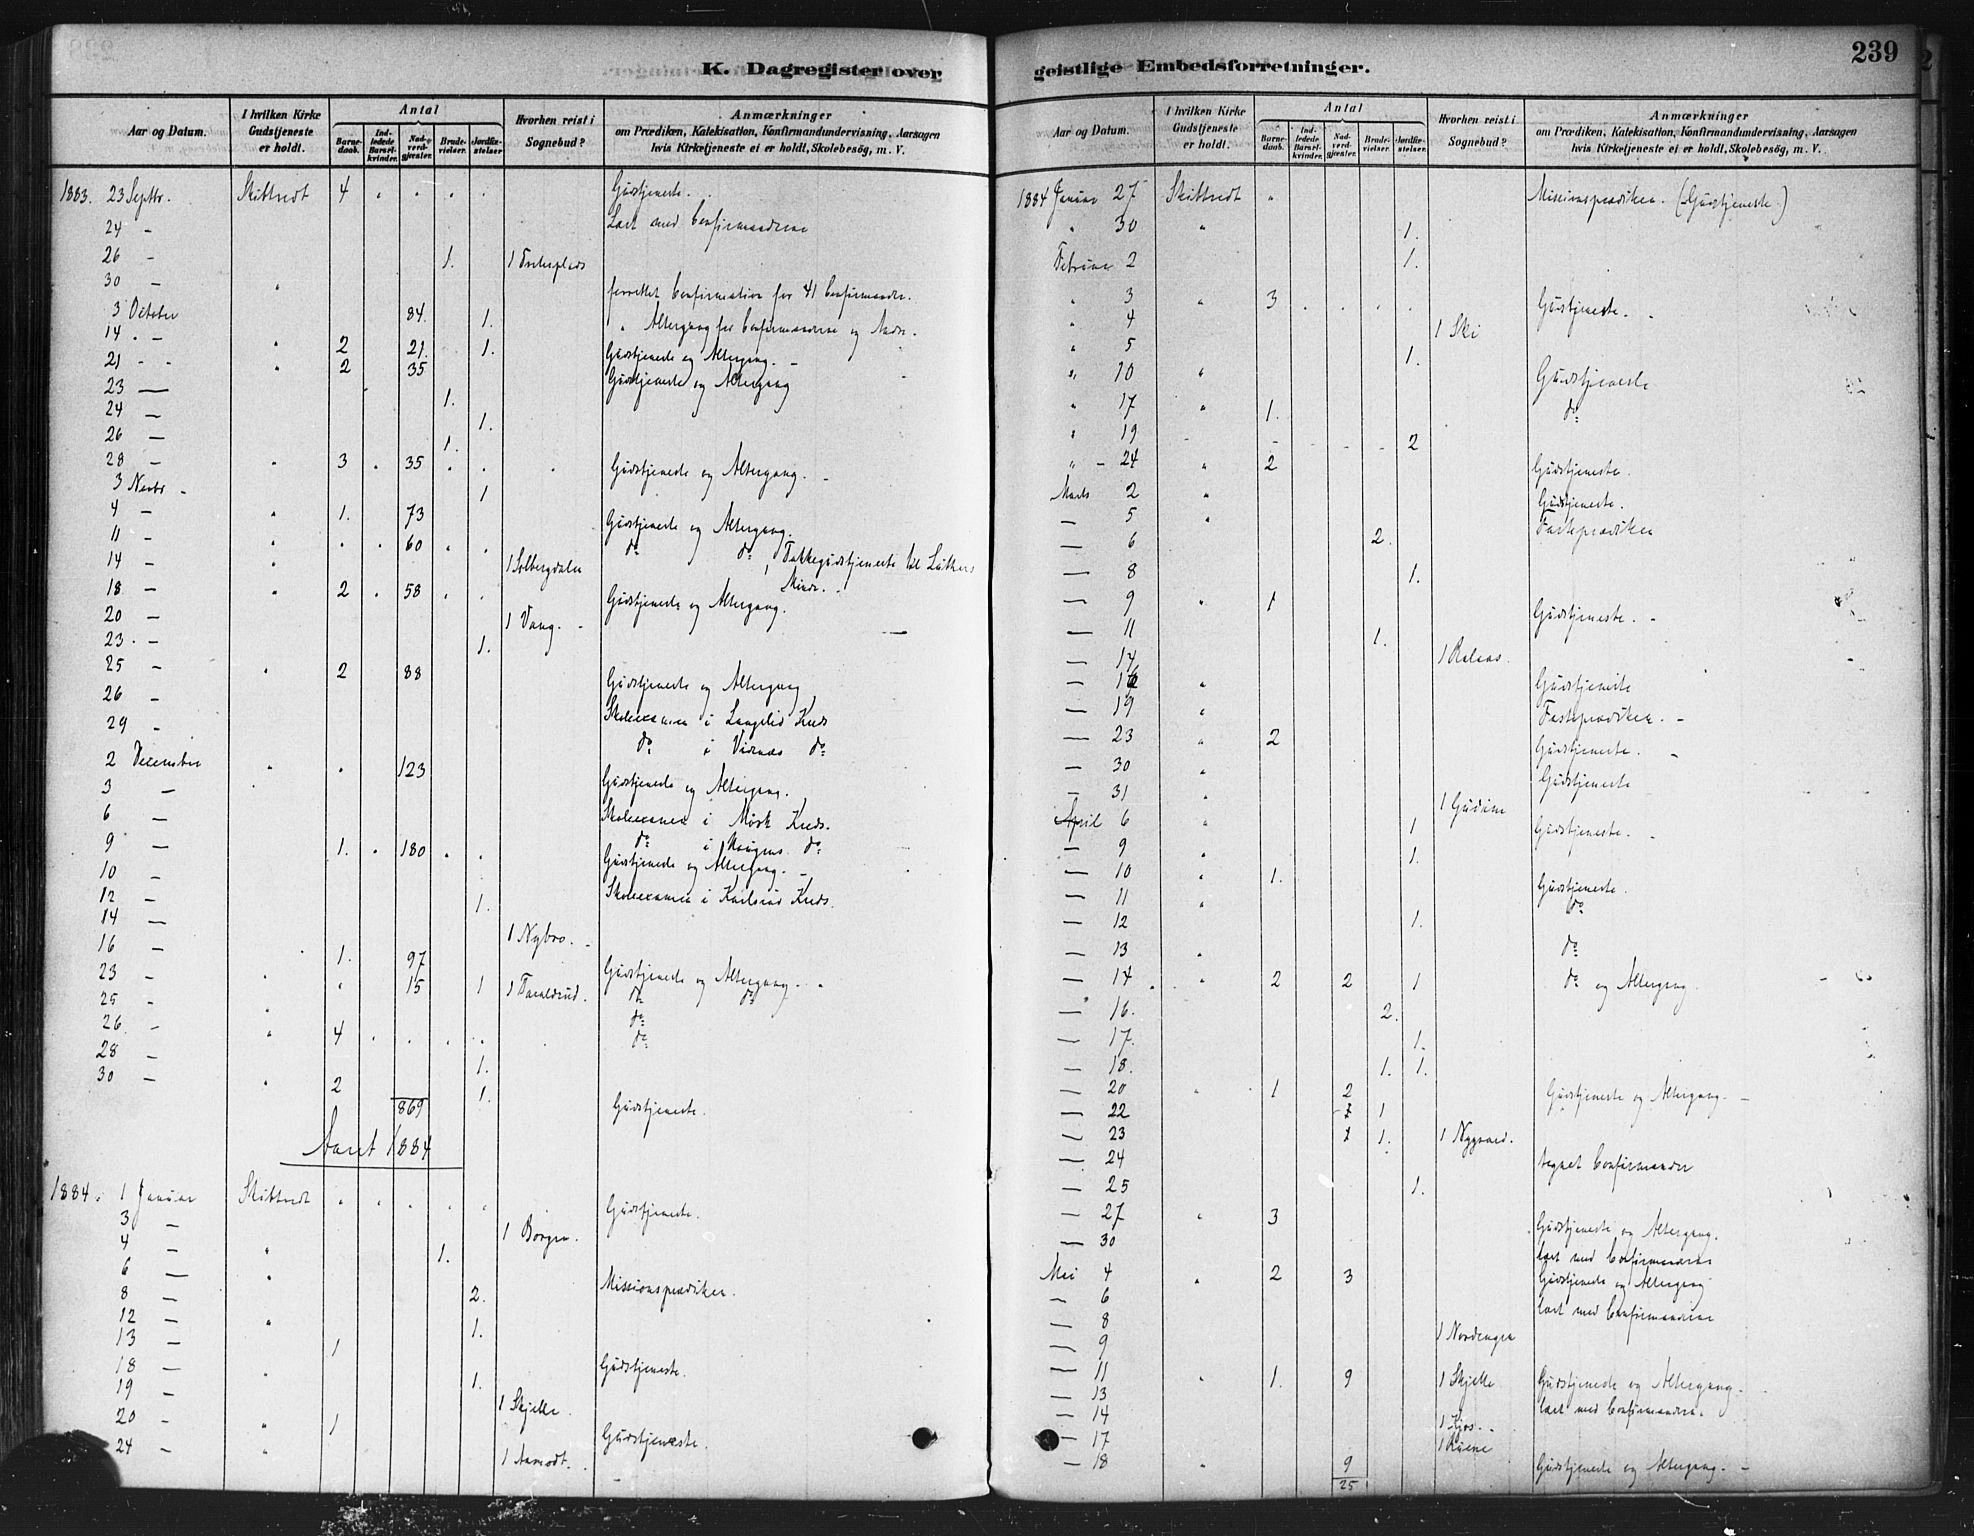 K. Dagregister over
Aar og Datum.
I hvilken Kirke Gudstjeneste er holdt.
Antal
Barnedaab.
Indledede Barselkvinder.
Nadverdgjester.
Brudevielser.
Jordfæstelser
Hvorhen reist i Sognebud?
Anmærkninger
om Prædiken, Katekisation, Konfirmandundervisning, Aarsagen
hvis Kirketjeneste ei er holdt, Skolebesög, m. V.
1883. 23 Septbr. Skibtvedt 4 Gudstjeneste.
24 - Læst med Confirmanderne
26 - 1. 1
30 - " forrettet Confirmation for 41 Confirmander.
3 October 84. 1. " Altergang for Confirmanderne og Andre.
14 - " 2 21. 1. Gudstjeneste og Altergang.
21 - " 2 35 Gudstjeneste og Altergang
23 - 1.
24 - 1.
26 - 1.
28 - " 3 35 Gudstjeneste og Altergang.
3 Novbr - 1
4 - " 1. 73 Gudstjeneste og Altergang.
11 - " 60 do do, Takkegudstjeneste til Luthers Minde.
14 - " 1 Solbergdalen
18 - " 2 58 Gudstjeneste og Altergang.
20 - 1 Vang.
23 - 1.
25 - " 2 88 Gudstjeneste og Altergang
26 - Skoleexamen i Langelid Kreds
29 - do i Vidnæs do
2 December " 123 Gudstjeneste og Altergang.
3 - Skoleexamen i Mørk Kreds.
6 - do i Haugens do
9 - 1. 180 Gudstjeneste og Altergang.
10 - Skoleexamen i Karlsrud Kreds.
12 - 1.
14 - 1 Nybro.
16 - 1. 97 Gudstjeneste og Altergang.
23 - " 15 1 1 Taraldrud. do do
25 - " do
26 - " 4 do
28 - 1.
30 - " 2 1. Gudstjeneste.
869
Aaret 1884
1884. 1 Januar Skibtvedt Gudstjeneste.
3 - 1 Borgen.
4 - " 1.
6 - " Missionsprædiken.
8 - 2.
12 - " 1.
13 - 1 Gudstjeneste.
18 - " 1.
19 - 1 Skjelle.
20 - " 1 Gudstjeneste.
24 - " 1 Aamodt.
geistlige Embedsforretninger.
239
Aar og Datum.
I hvilken Kirke Gudstjeneste er holdt.
Antal
Barnedaab.
Indledede Barselkvinder.
Nadverdgjester.
Brudevielser.
Jordfæstelser
Hvorhen reist i Sognebud?
Anmærkninger
om Prædiken, Katekisation, Konfirmandundervisning, Aarsagen
hvis Kirketjeneste ei er holdt, Skolebesög, m. V.
1884 Januar 27 Skibtvedt " Missionsprædiken. (Gudstjeneste.)
" 30 " 1.
Februar 2 1.
" 3 " 3 Gudstjeneste.
" 4 1 Ski
" 5 1.
" 10 " Gudstjeneste
" 17 " 1. do
" 19 2
" 24 " 2 Gudstjeneste.
Marts 2 " Gudstjeneste.
- 5 " Fasteprædiken
- 6 2.
- 8 1.
- 9 " 1 Gudstjeneste.
- 11 1.
- 14 1
- 16 " Gudstjeneste
- 19 " Fasteprædiken.
- 23 " 2 Gudstjeneste.
- 30 " Gudstjeneste
- 31 " 1 Gudim
April 6 " 1 Gudstjeneste.
- 9 " 1.
- 10 " 1. Gudstjeneste.
- 11 " do
- 12 1.
- 13 " do
- 14 " 2 2 1 do og Altergang.
- 16. 2.
- 17. 1.
- 18. 1. 1.
- 20 " 1 2 Gudstjeneste og Altergang.
- 22 1
- 23 1 1. 1 Nygaard.
- 24 tegnet Confirmander
- 25 1.
- 27 " 3 Gudstjeneste og Altergang.
- 30 læst med Confirmanderne
Mai 4 " 2 3 Gudstjeneste og Altergang
- 6 læst med Confirmanderne
- 8
- 9 1 Nordengen
- 11 " 1. 9 1 Skjelle Gudstjeneste og Altergang.
- 13 læst med Confirmandrn.
- 14 1 Kjos.
- 17 1
- 18 " 9 Gudstjeneste og Altergang.
25